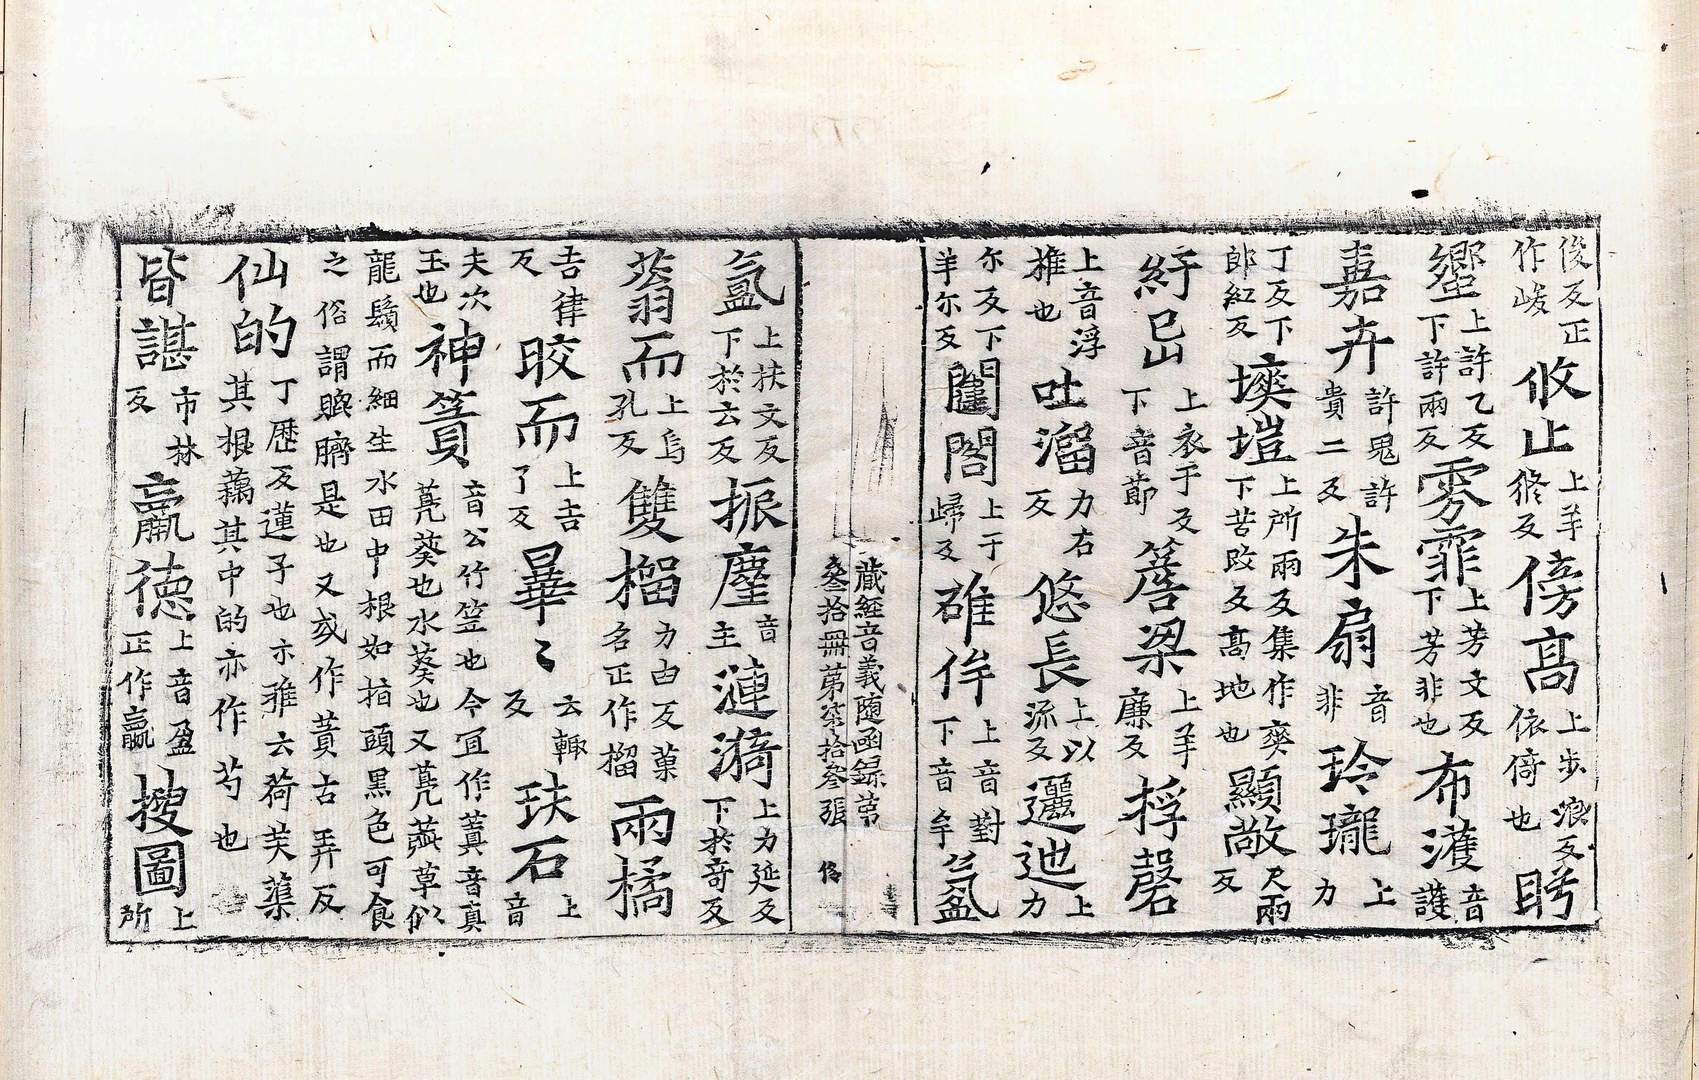 俊反正作峻 攸止 上羊修反 傍高 上步浪反依倚也 盻
蠁 上許乙反下許兩反 雰霏 上芳文反下芳非也 布濩 音護
嘉卉 許鬼許貴二反 朱扇 音非 玲瓏 上力
丁反下郎紅反 塽塏 上所兩反集作爽下苦改反高地也 顯敞 尺兩反
紆 上衣于反下音節 簷梁 上羊廉反 桴磬
上音浮搥也 吐溜 力右反 悠長 上以流反 邐迆 上力
尔反下羊尔反 闈閤 上于歸反 碓侔 上音對下音牟 氛
氳 上扶文反下於云反 振麈 音主 漣漪 上力延反下於奇反
蓊而 上烏孔反 雙榴 力由反菓名正作榴 兩橘
吉律反 晈而 上吉了反 暈〻 云輙反 玞石 上音
夫次玉也 神簣 音公竹笠也今冝作蕢音真 葵也水葵也又 草似
龍鬚而細生水田中根如指頭黑色可食
之俗謂 臍是也又或作蕢古弄反
仙的 丁歷反蓮子也亦 云荷芙蕖其根藕其中的亦作芍也
皆諶 市林反 羸德 上音盈正作贏 搜圖 上所
藏經音義隨函録第叄拾冊第柒拾叄張